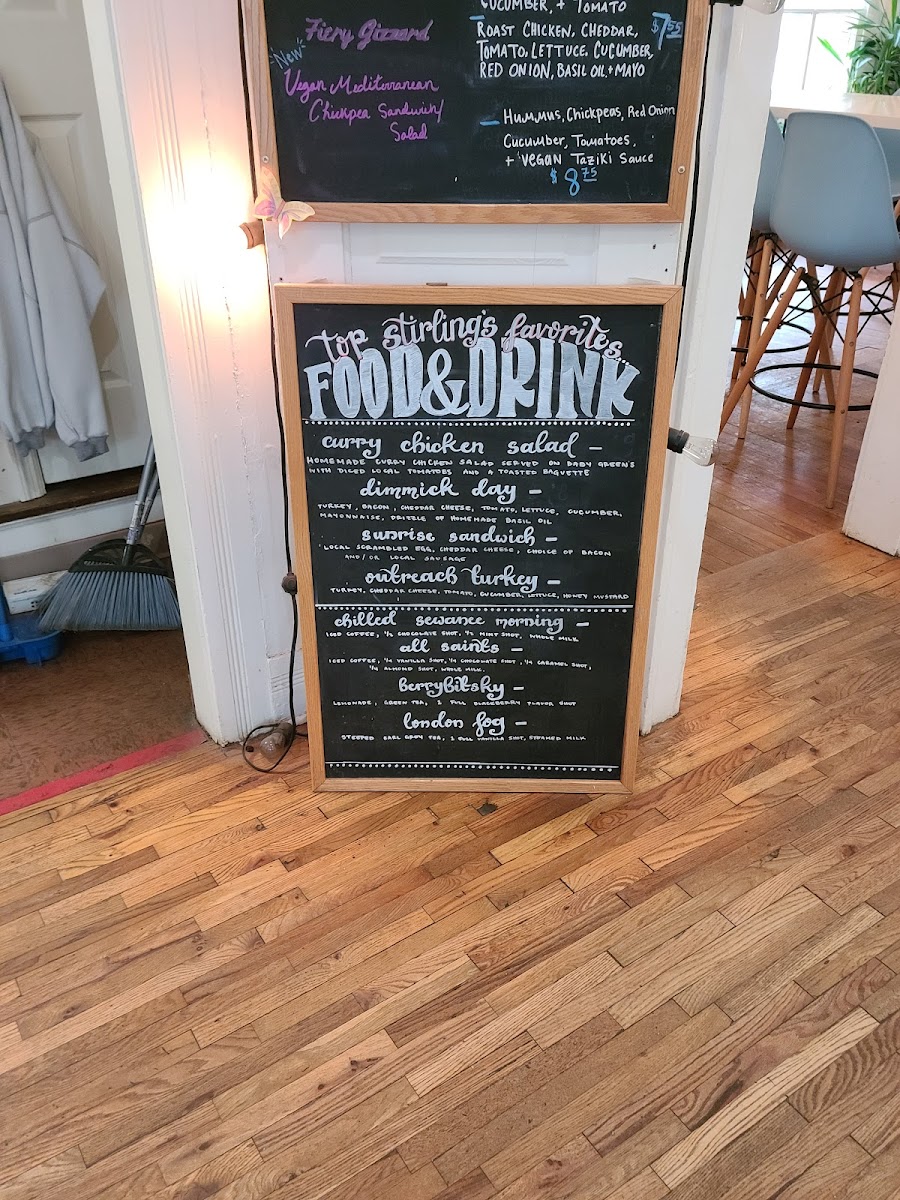 CUCUMBER, + TOMATO
Fiery Gizzard
ROAST CHICKEN, CHEDDAR,
TOMATO, LETTUCE, CUCUMBER,
RED ONION, BASIL OIL + MAYO
"New"
Vegan Mediterranean
Chickpea Sandwich/
Salad
- HUMMUS, CHICKPEAS, RED ONION
CUCUMBER, TOMATOES,
+ VEGAN TAZIKI SAUCE
$ 8.75
top stirling's favorites...
FOOD & DRINK
curry chicken salad -
HOMEMADE CURRY CHICKEN SALAD SERVED ON BABY GREEN'S
WITH DICED LOCAL TOMATOES AND A TOASTED BAGUETTE
dimmick day -
TURKEY, BACON, CHEDDAR CHEESE, TOMATO, LETTUCE, CUCUMBER,
MAYONNAISE, DRIZZLE OF HOMEMADE BASIL OIL
sunrise sandwich -
LOCAL SCRAMBLED EGG, CHEDDAR CHEESE, CHOICE OF BACON
AND/OR LOCAL SAUSAGE
outreach turkey -
TURKEY, CHEDDAR CHEESE, TOMATO, CUCUMBER, LETTUCE, HONEY MUSTARD
chilled sewanee morning -
ICED COFFEE, ½ CHOCOLATE SHOT, ½ MINT SHOT, WHOLE MILK
all saints -
ICED COFFEE, ¼ VANILLA SHOT, ¼ CHOCOLATE SHOT, ¼ CARAMEL SHOT,
¼ ALMOND SHOT, WHOLE MILK.
berrybitsky -
LEMONADE, GREEN TEA, 1 FULL BLACKBERRY FLAVOR SHOT
london fog -
STEEPED EARL GREY TEA, 1 FULL VANILLA SHOT, STEAMED MILK